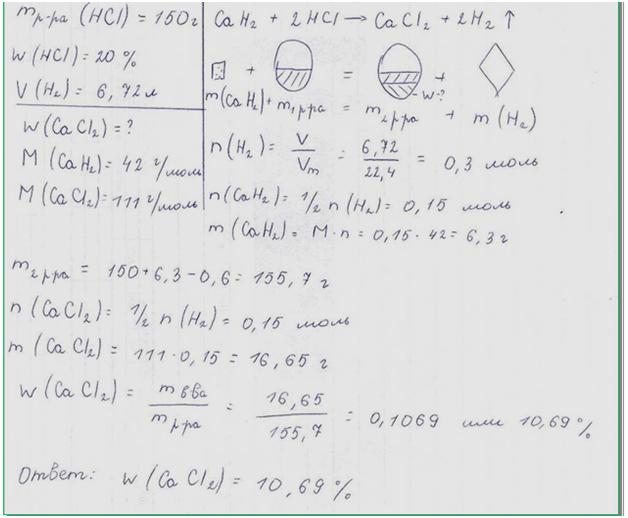 mр-ра (HCl) = 150г
W (HCl) = 20 %
V (H₂) = 6,72л
W (CaCl₂) = ?
M (CaH₂) = 42 г/моль
M (CaCl₂) = 111 г/моль
CaH₂ + 2HCl → CaCl₂ + 2H₂ ↑
+ = + 
-W-?
m(CaH₂) + m₁р-ра = m₂р-ра + m(H₂)
n(H₂) = V/Vm = 6,72/22,4 = 0,3 моль
n(CaH₂) = 1/2 n(H₂) = 0,15 моль
m(CaH₂) = M·n = 0,15·42 = 6,3 г
m₂р-ра = 150+6,3-0,6 = 155,7 г
n(CaCl₂) = 1/2 n(H₂) = 0,15 моль
m(CaCl₂) = 111·0,15 = 16,65 г
W(CaCl₂) = mв-ва/mр-ра = 16,65/155,7 = 0,1069 или 10,69%
Ответ: W(CaCl₂) = 10,69%